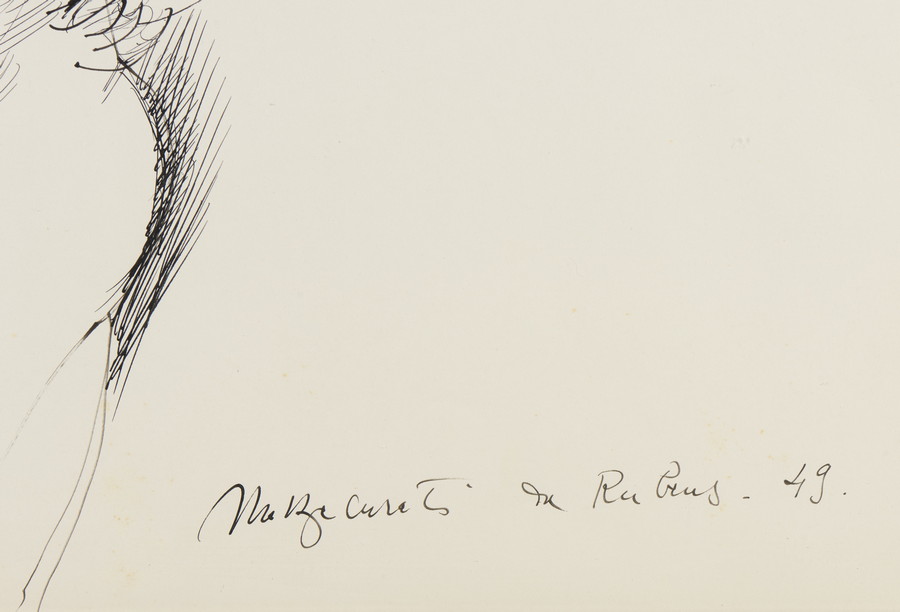 Mazzacurati da Rubens - 49.